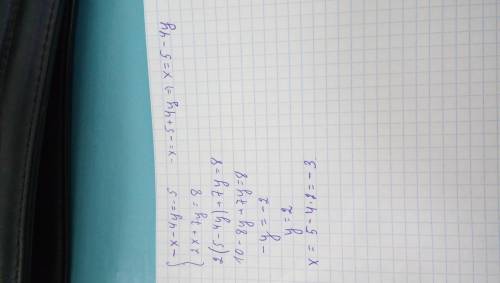 { -x-4y=-5 -x=-5+4y => x=5-4y
2x+7y=8
2(5-4y)+7y=8
10-8y+7y=8
-y=-2
y=2
x=5-4·2=-3